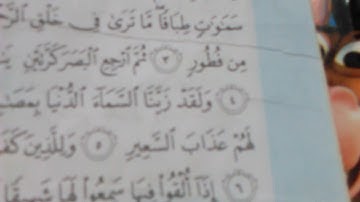 سَمَٰوَٰتٍ طِبَاقًا ۖ مَّا تَرَىٰ فِي خَلْقِ
مِن فُطُورٍ ٣ ثُمَّ ٱرْجِعِ ٱلْبَصَرَ كَرَّتَيْنِ
٤ وَلَقَدْ زَيَّنَّا ٱلسَّمَآءَ ٱلدُّنْيَا
لَهُمْ عَذَابَ ٱلسَّعِيرِ ٥ وَلِلَّذِينَ
٦ إِذَآ أُلْقُوا۟ فِيهَا سَمِعُوا۟ لَهَا شَهِيقًا